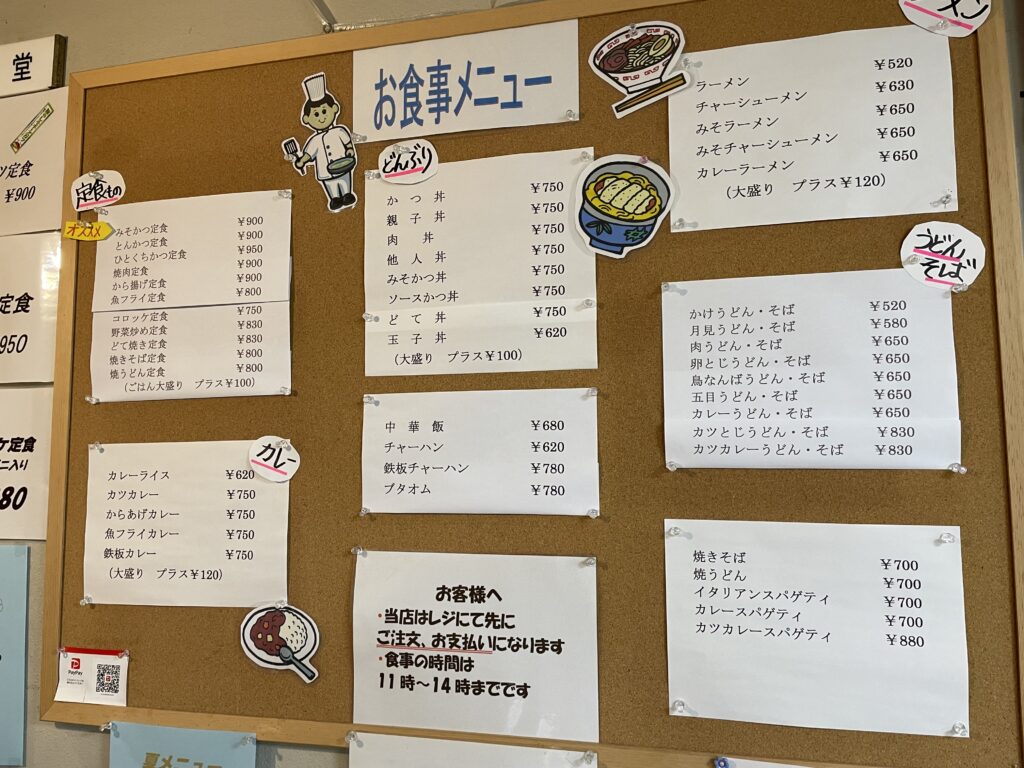 堂
ツ定食
¥900
定食
950
ケ定食
ニ入り
80
お食事メニュー
定食もの
オススメ
みそかつ定食 ¥900
とんかつ定食 ¥900
ひとくちかつ定食 ¥950
焼肉定食 ¥900
から揚げ定食 ¥900
魚フライ定食 ¥800
コロッケ定食 ¥750
野菜炒め定食 ¥830
どて焼き定食 ¥830
焼きそば定食 ¥800
焼うどん定食 ¥800
(ごはん大盛り プラス¥100)
カレー
カレーライス ¥620
カツカレー ¥750
からあげカレー ¥750
魚フライカレー ¥750
鉄板カレー ¥750
(大盛り プラス¥120)
PayPay
どんぶり
かつ丼 ¥750
親子丼 ¥750
肉丼 ¥750
他人丼 ¥750
みそかつ丼 ¥750
ソースかつ丼 ¥750
どて丼 ¥750
玉子丼 ¥620
(大盛り プラス¥100)
中華飯 ¥680
チャーハン ¥620
鉄板チャーハン ¥780
ブタオム ¥780
お客様へ
・当店はレジにて先に
ご注文、お支払いになります
・食事の時間は
11時～14時までです
メン
ラーメン ¥520
チャーシューメン ¥630
みそラーメン ¥650
みそチャーシューメン ¥650
カレーラーメン ¥650
(大盛り プラス¥120)
うどん
そば
かけうどん・そば ¥520
月見うどん・そば ¥580
肉うどん・そば ¥650
卵とじうどん・そば ¥650
鳥なんばうどん・そば ¥650
五目うどん・そば ¥650
カレーうどん・そば ¥650
カツとじうどん・そば ¥830
カツカレーうどん・そば ¥830
焼きそば ¥700
焼うどん ¥700
イタリアンスパゲティ ¥700
カレースパゲティ ¥700
カツカレースパゲティ ¥880
夏メニュー